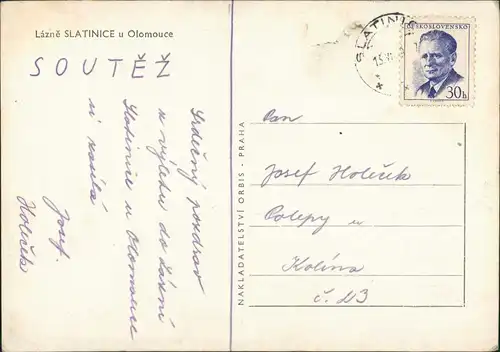 Lázně SLATINICE u Olomouce
SOUTĚŽ
Srdečný pozdrav
z výletu do Lázní
Slatinice u Olomouce
si posílá
Josef
Holeček
NAKLADATELSTVÍ ORBIS - PRAHA
SLATINIC
ČESKOSLOVENSKO
30h
Pan
Josef Holeček
Polepy u
Kolína
č. 23